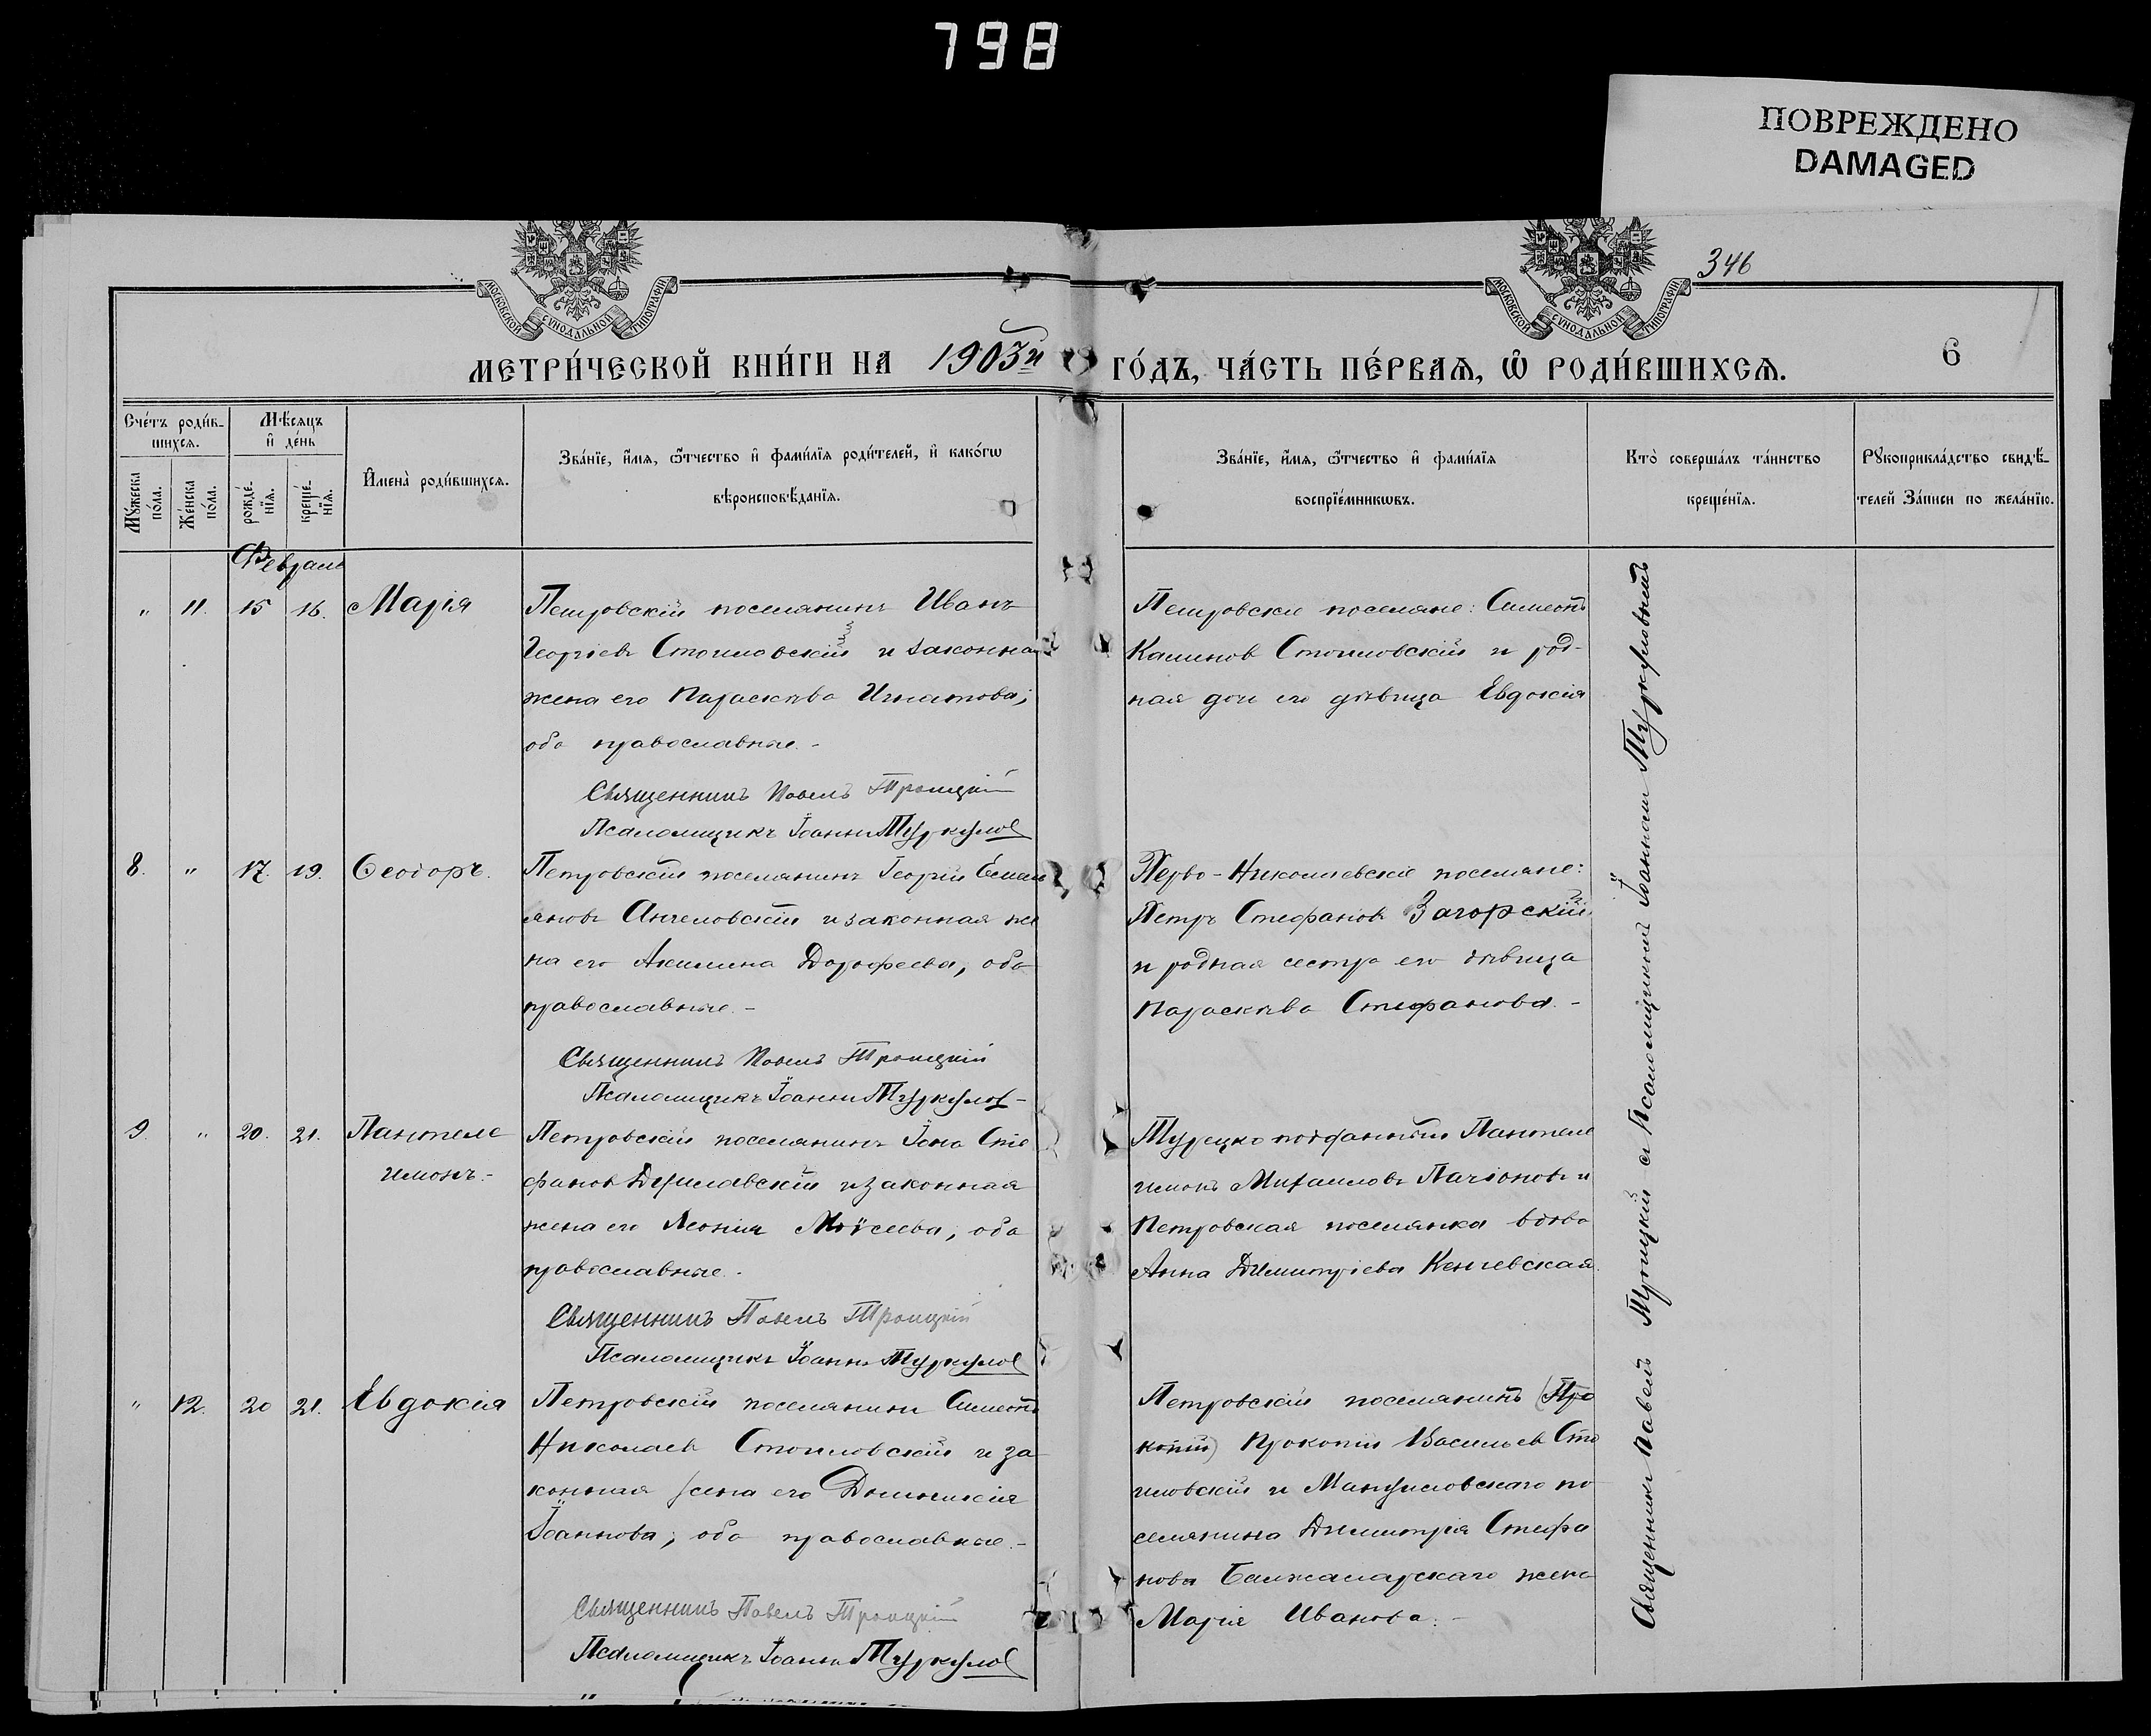 798
ПОВРЕЖДЕНО
DAMAGED
МОСКОВСКОЙ СѴНОДАЛЬНОЙ ТИПОГРАФІИ
МОСКОВСКОЙ СѴНОДАЛЬНОЙ ТИПОГРАФІИ
346
МЕТРИ́ЧЕСКОЙ КНИ́ГИ НА 1903й ГО́ДЪ, ЧА́СТЬ ПЕ́РВАѦ, Ѽ РОДИ́ВШИХСѦ.
6
Сче́тъ роди́в-
шихсѧ.
Мѣ́сѧцъ
и҆ де́нь
Мꙋ́жеска
по́ла.
Же́нска
по́ла.
рожде́-
нїѧ.
креще́-
нїѧ.
И҆мена̀ роди́вшихсѧ.
Зва́нїе, и҆́мѧ, ѻ҆́тчество и҆ фами́лїѧ роди́телей, и҆ како́гѡ
вѣроисповѣ́данїѧ.
Зва́нїе, и҆́мѧ, ѻ҆́тчество и҆ фами́лїѧ
воспрїе́мникѡвъ.
Кто̀ соверша́лъ та́инство
креще́нїѧ.
Рꙋкоприкла́дство свидѣ́-
телей за́писи по жела́нїю.
Февраль
" 11. 15 16. Марія
Петровскій поселянинъ Иванъ
Георгіевъ Стоиловскій и законная
жена его Параскева Игнатова;
оба православные.-
Священникъ Павелъ Троицкій
Псаломщикъ Іоаннъ Туркулов
Петровскіе поселяне: Симеонъ
Калинов Стоиловскій и род-
ная дочь его дѣвица Евдокія
8. " 17. 19. Ѳеодоръ.
Петровскій поселянинъ Георгій Емель
яновъ Ангеловскій и законная же
на его Акилина Дорофеева, оба
православные.-
Священникъ Павелъ Троицкій
Псаломщикъ Іоаннъ Туркулов
Перво-Николаевскіе поселяне:
Петръ Стефановъ Загорскій
и родная сестра его дѣвица
Параскева Стефанова.-
9. " 20. 21. Пантеле
имонъ.-
Петровскій поселянинъ Іона Сте
фанов и законная
жена его Леонія Моѵсеева, оба
православные.-
Священникъ Павелъ Троицкій
Псаломщикъ Іоаннъ Туркулов
Турецко подданный Пантеле
имонъ Михаиловъ и
Петровская поселянка вдова
Анна Димитріева Кенчевская.
" 12. 20 21. Евдокія
Петровскій поселянинъ Симеонъ
Николаев Стоиловскій и за
конная жена его Домникія
Іоаннова; оба православные.-
Священникъ Павелъ Троицкій
Псаломщикъ Іоаннъ Туркулов
Петровскій поселянинъ (Про
копій) Прокопій Васильев Сто
иловскій и Мансуиловскаго по
селянина Димитрія Стефа
нова жена
Марія Иванова.-
Священникъ Павелъ Троицкій съ Псаломщикомъ Іоанномъ Туркуловымъ